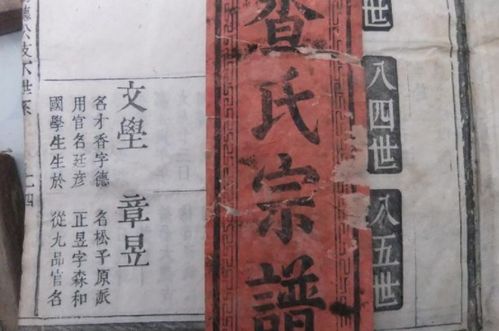 世
八四世
八五世
查氏宗譜
文壆 章昱
名才香字德 名松子原派
用官名廷彥 正昱字森和
國學生生於 從九品官名
公支下世系 二四